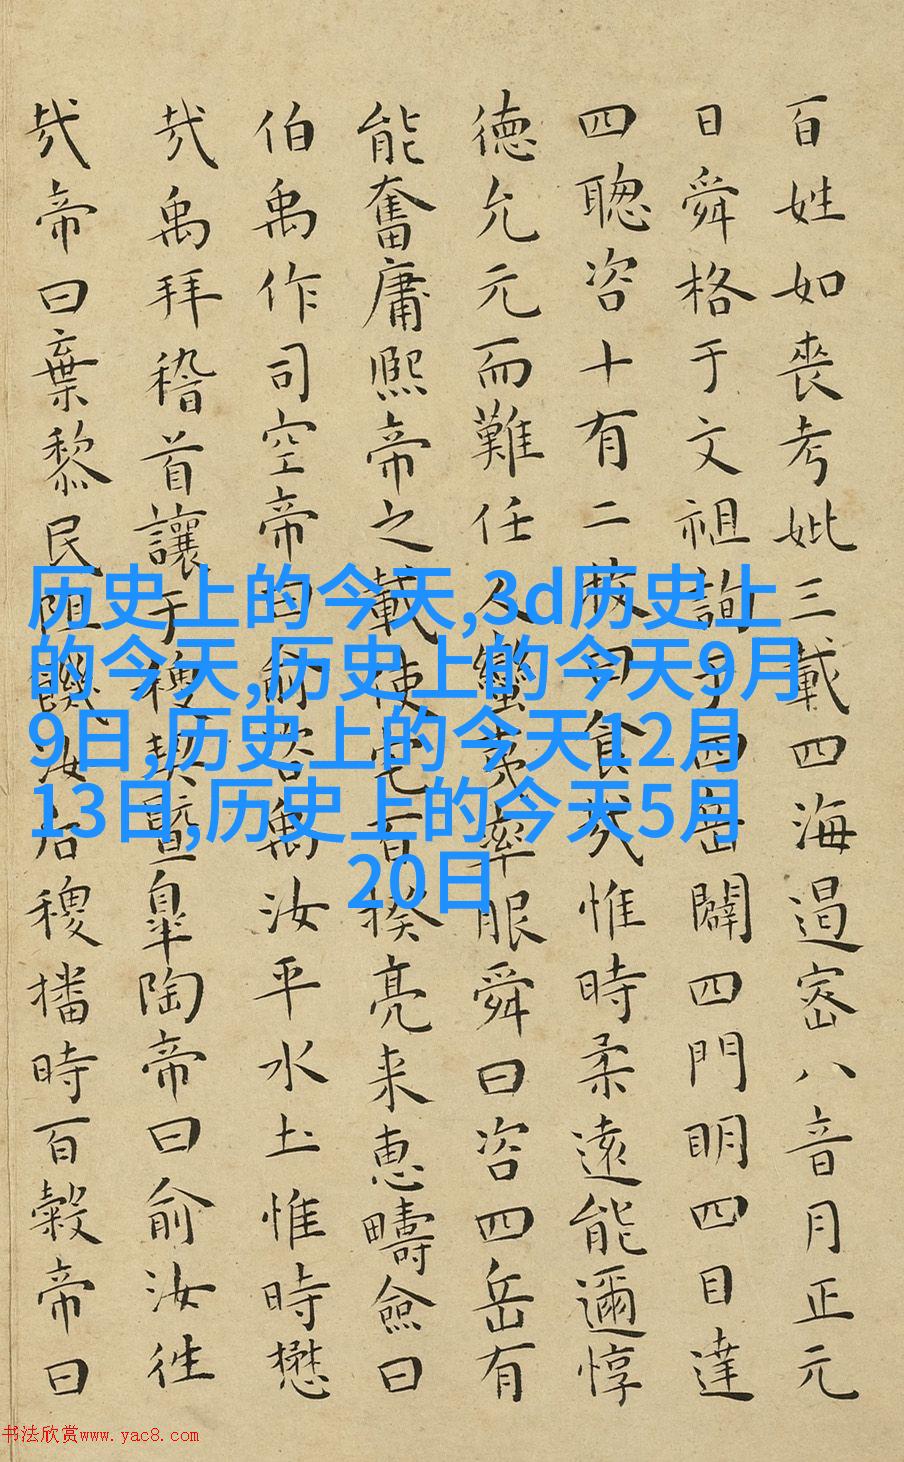 百姓如喪考妣三載四海遏密八音月正元
日舜格于文祖詢于四岳闢四門明四目達
四聦咨十有二牧曰食哉惟時柔遠能邇惇
徳允元而難任人蠻夷率服舜曰咨四岳有
能奮庸熙帝之載使宅百揆亮采惠疇僉曰
伯禹作司空帝曰俞咨禹汝平水土惟時懋
哉禹拜稽首讓于稷契暨皐陶帝曰俞汝往
哉帝曰棄黎民阻饑汝后稷播時百穀帝曰
历史上的今天,3d历史上
的今天,历史上的今天9月
9日,历史上的今天12月
13日,历史上的今天5月
20日
书法欣赏www.yac8.com